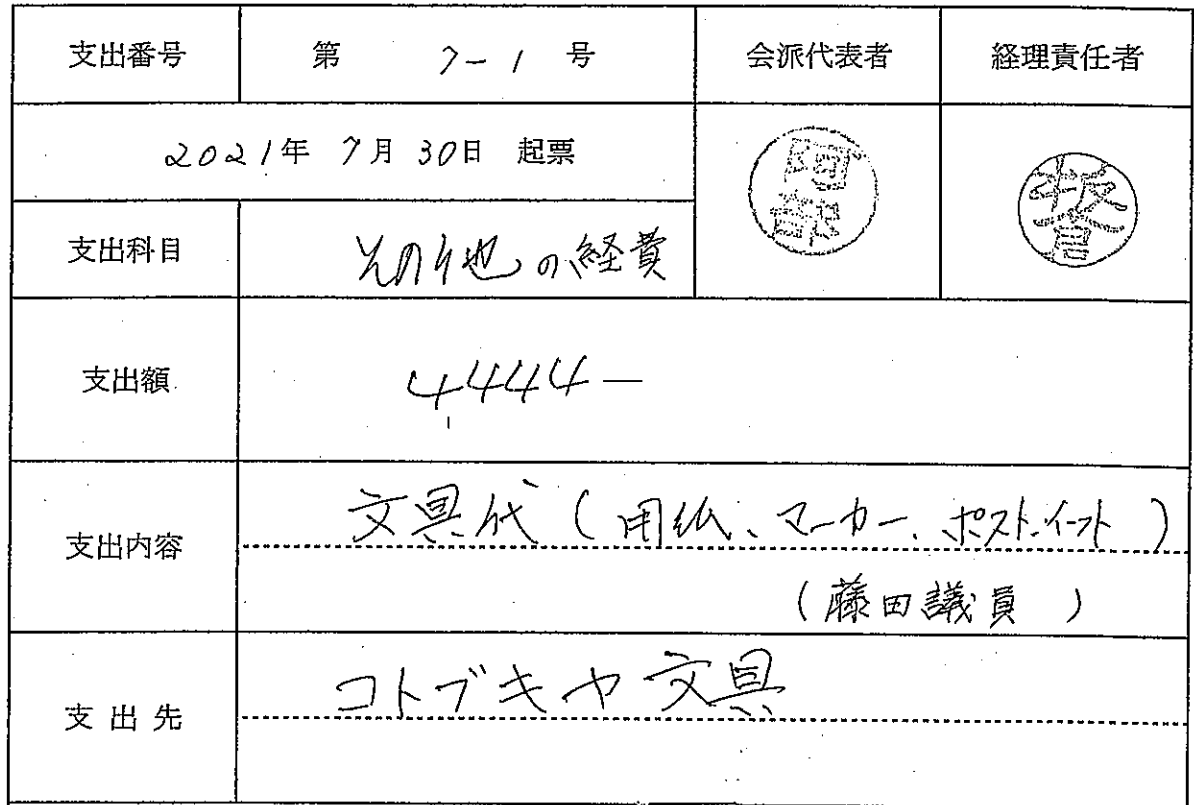 支出番号 第 7-1 号 会派代表者 経理責任者
2021年 7月 30日 起票
阿部
支出科目 その他の経費
支出額 4444-
支出内容 文具代(用紙、マーカー、ポストイット)
(藤田議員 )
支出先 コトブキヤ文具